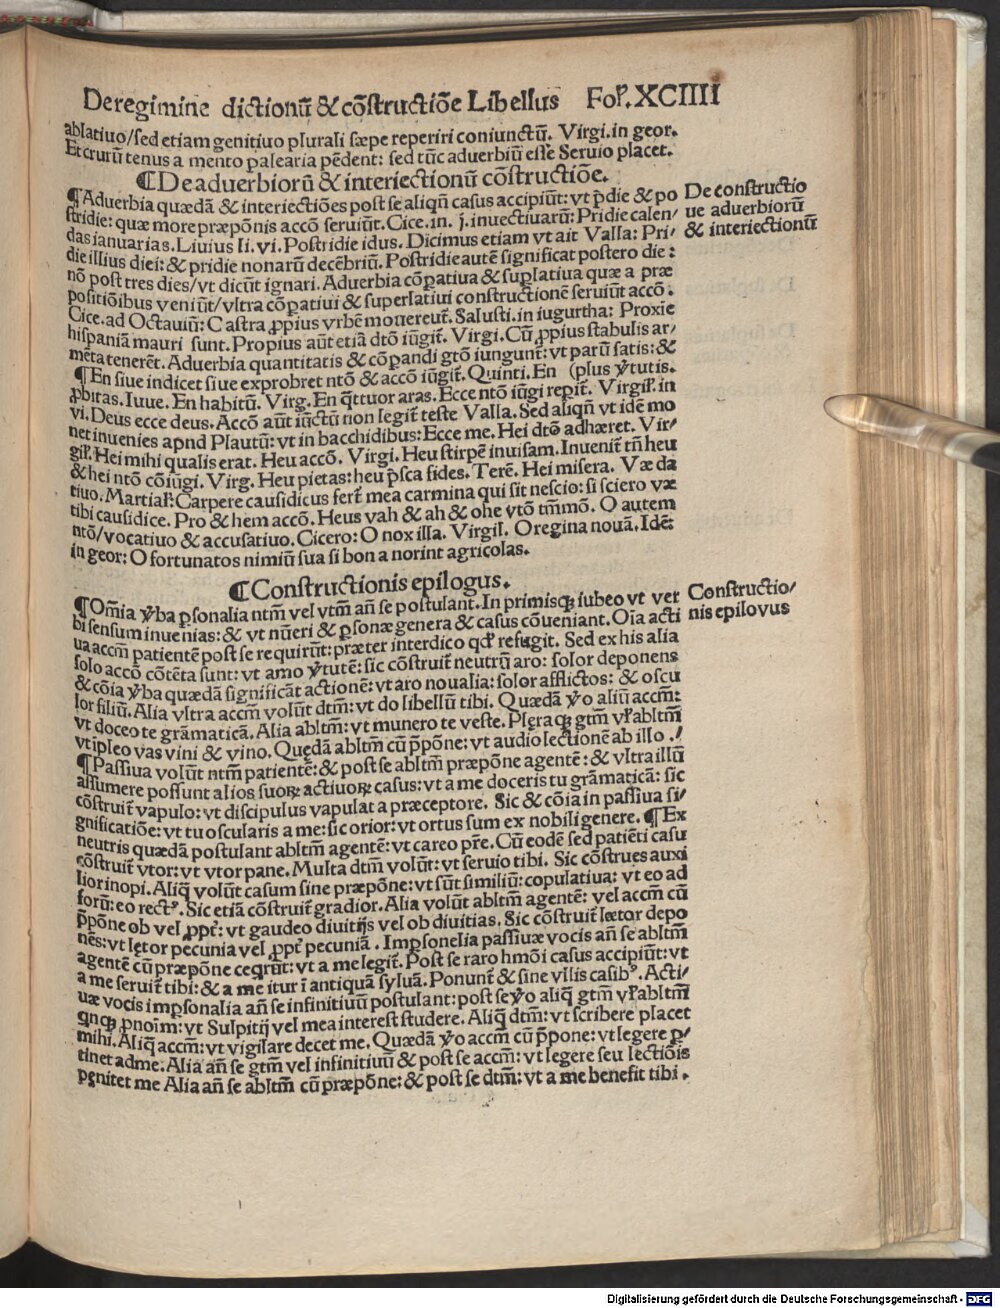 De regimine dictionū & cōstructiōe Libellus Foł. XCIIII
ablatiuo/sed etiam genitiuo plurali sæpe reperiri coniunctū. Virgi. in geor.
Et crurū tenus a mento palearia pēdent: sed tūc aduerbiū esse Seruio placet.
¶De aduerbiorū & interiectionū cōstructiōe.
De constructio
ue aduerbiorū
& interiectionū
¶Aduerbia quædā & interiectiōes post se aliqñ casus accipiūt: vt p̄die & po
stridie: quæ more præpōnis accō seruiūt. Cice. in. j. inuectiuarū: Pridie calen/
das ianuarias. Liuius li. vi. Postridie idus. Dicimus etiam vt ait Valla: Pri/
die illius diei: & pridie nonarū decēbriū. Postridie autē significat postero die:
nō post tres dies/vt dicūt ignari. Aduerbia cōpatiua & suplatiua quæ a præ
positiōibus veniūt/vltra cōpatiui & superlatiui constructionē seruiūt accō.
Cice. ad Octauiū: Castra ꝓpius vrbē mouereut̄. Salusti. in iugurtha: Proxie
hispaniā mauri sunt. Propius aūt etiā dtō iūgit̄. Virgi. Cū ꝓpius stabulis ar/
mēta tenerēt. Aduerbia quantitatis & cōpandi gtō iungunt̄: vt parū satis: &
¶En siue indicet siue exprobret ntō & accō iūgit̄. Quinti. En (plus v̄tutis.
ꝓbitas. Iuue. En habitū. Virg. En q̄ttuor aras. Ecce ntō iūgi repit̄. Virgił. in
vi. Deus ecce deus. Accō aūt iūctū non legit̄ teste Valla. Sed aliqñ vt idē mo
net inuenies apnd Plautū: vt in bacchidibus: Ecce me. Hei dtō adhæret. Vir/
gił. Hei mihi qualis erat. Heu accō. Virgi. Heu stirpē inuisam. Inuenit̄ tñ heu
& hei ntō cōiūgi. Virg. Heu pietas: heu p̄sca fides. Terē. Hei misera. Væ da
tiuo. Martiał: Carpere causidicus fert̄ mea carmina qui sit nescio: si sciero væ
tibi causidice. Pro & hem accō. Heus vah & ah & ohe vtō tm̄mō. O autem
ntō/vocatiuo & accusatiuo. Cicero: O nox illa. Virgil. O regina nouā. Idē:
in geor: O fortunatos nimiū sua si bona norint agricolas.
¶Constructionis epilogus.
Constructio/
nis epilovus
¶Om̄ia v̄ba psonalia ntm̄ vel vtm̄ añ se postulant. In primisqꝫ iubeo vt ver
bi sensum inuenias: & vt nūeri & psonæ genera & casus cōueniant. Oīa acti
ua accm̄ patientē post se requirūt: præter interdico qđ refugit. Sed ex his alia
solo accō cōtēta sunt: vt amo v̄tutē: sic cōstruit̄ neutrū aro: solor deponens
& cōia v̄ba quædā significāt actionē: vt aro noualia: solor afflictos: & oscu
lor filiū. Alia vltra accm̄ volūt dtm̄: vt do libellū tibi. Quædā v̄o aliū accm̄:
vt doceo te grāmaticā. Alia abltm̄: vt munero te veste. Pleraqꝫ gtm̄ vł abltm̄
vt ipleo vas vini & vino. Quędā abltm̄ cū p̄pōne: vt audio lectionē ab illo./
¶Passiua volūt ntm̄ patientē: & post se abltm̄ præpōne agentē: & vltra illū
assumere possunt alios suoꝝ actiuoꝝ casus: vt a me doceris tu grāmaticā: sic
cōstruit̄ vapulo: vt discipulus vapulat a præceptore. Sic & cōia in passiua si/
gnificatiōe: vt tu oscularis a me: sic orior: vt ortus sum ex nobili genere. ¶Ex
neutris quædā postulant abltm̄ agentē: vt careo pr̄e. Cū eodē sed patiēti casu
cōstruit̄ vtor: vt vtor pane. Multa dtm̄ volūt: vt seruio tibi. Sic cōstrues auxi
lior inopi. Aliq̄ volūt casum sine præpōne: vt sūt similiū: copulatiua: vt eo ad
forū: eo rectꝰ. Sic etiā cōstruit̄ gradior. Alia volūt abltm̄ agentē: vel accm̄ cū
p̄pōne ob vel ꝓpt̄: vt gaudeo diuitijs vel ob diuitias. Sic cōstruit̄ lætor depo
nēs: vt lętor pecunia vel ꝓpt̄ pecuniā. Impsonelia passiuæ vocis añ se abltm̄
agentē cū præpōne ceqrūt: vt a me legit̄. Post se raro hmōi casus accipiūt: vt
a me seruit̄ tibi: & a me itur ī antiquā syluā. Ponunt̄ & sine vllis casibꝰ. Acti/
uæ vocis impsonalia añ se infinitiuū postulant: post se v̄o aliq̄ gtm̄ vł abltm̄
qnqꝫ pnoīm: vt Sulpitij vel mea interest studere. Aliq̄ dtm̄: vt scribere placet
mihi. Aliq̄ accm̄: vt vigilare decet me. Quædā v̄o accm̄ cū p̄pone: vt legere ꝑ/
tinet ad me. Alia añ se gtm̄ vel infinitiuū & post se accm̄: vt legere seu lectiōis
pęnitet me Alia añ se abltm̄ cū præpōne: & post se dtm̄: vt a me benefit tibi.
Digitalisierung gefördert durch die Deutsche Forschungsgemeinschaft - DFG